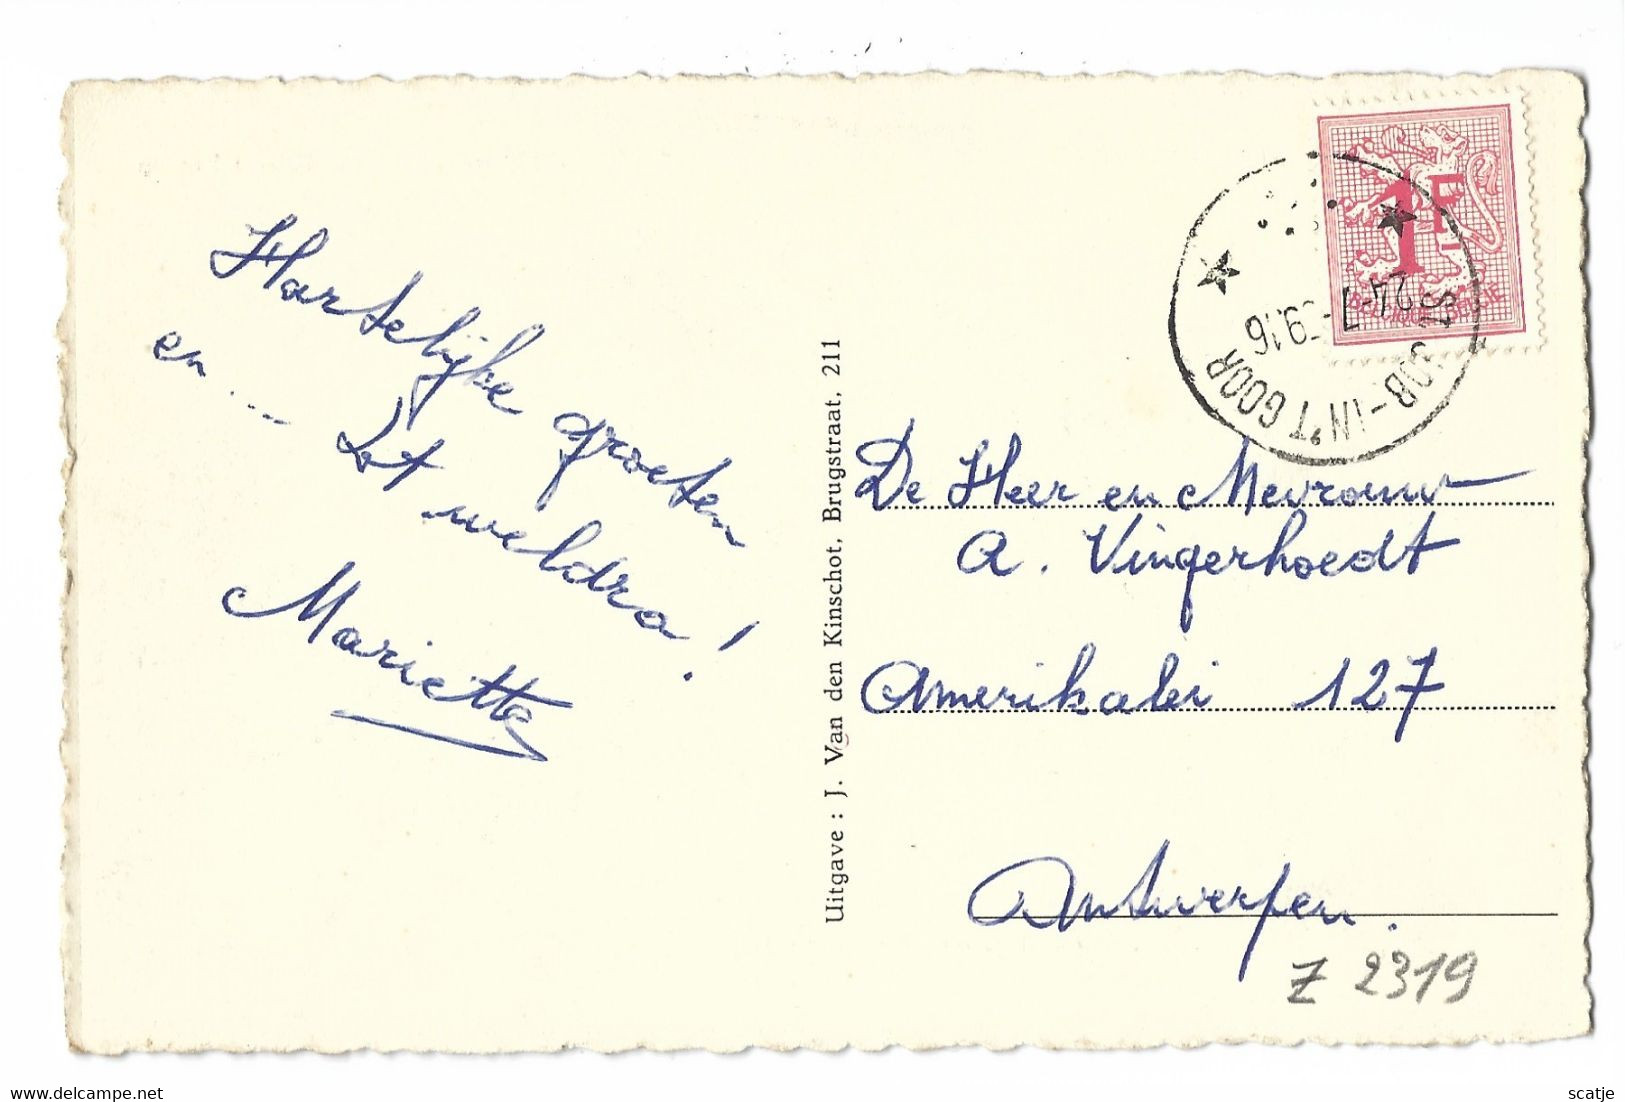 Hartelijke groeten
en ... tot weldra!
Mariette
Uitgave : J. Van den Kinschot, Brugstraat, 211
1F
BELGIQUE-BELGIE
ST JOB-IN'T GOOR
24-7
16
De Heer en Mevrouw
A. Vingerhoedt
Amerikalei 127
Antwerpen.
Z 2319
www.delcampe.net
scatje